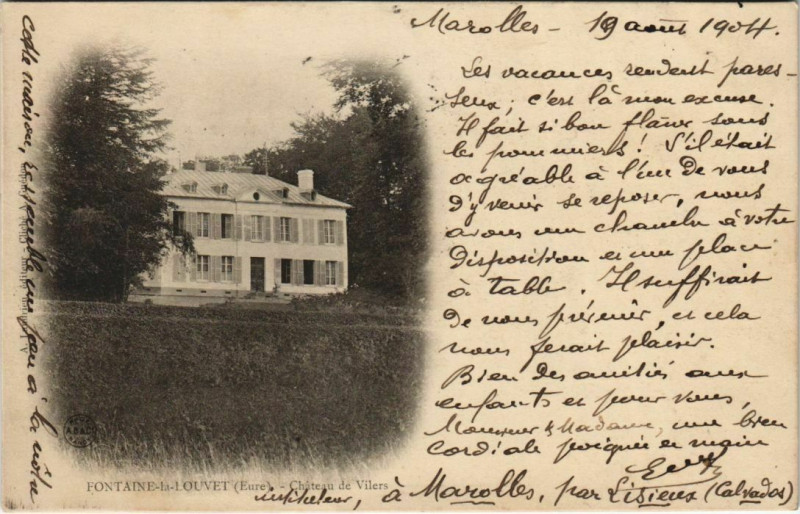 Marolles - 19 août 1904.
Les vacances rendent pares-
seux; c'est là mon excuse.
Il fait si bon flâner sous
les pommiers ! S'il était
agréable à l'un de vous
d'y venir se reposer, nous
avons une chambre à votre
disposition et une place
à table. Il suffirait
de nous prévenir, et cela
nous ferait plaisir.
Bien des amitiés aux
enfants et pour vous,
Monsieur & Madame, une bien
cordiale poignée de main
instituteur, à Marolles, par Lisieux (Calvados)
cette maison, ressemble un peu à la nôtre
FONTAINE-la-LOUVET (Eure). - Château de Vilers